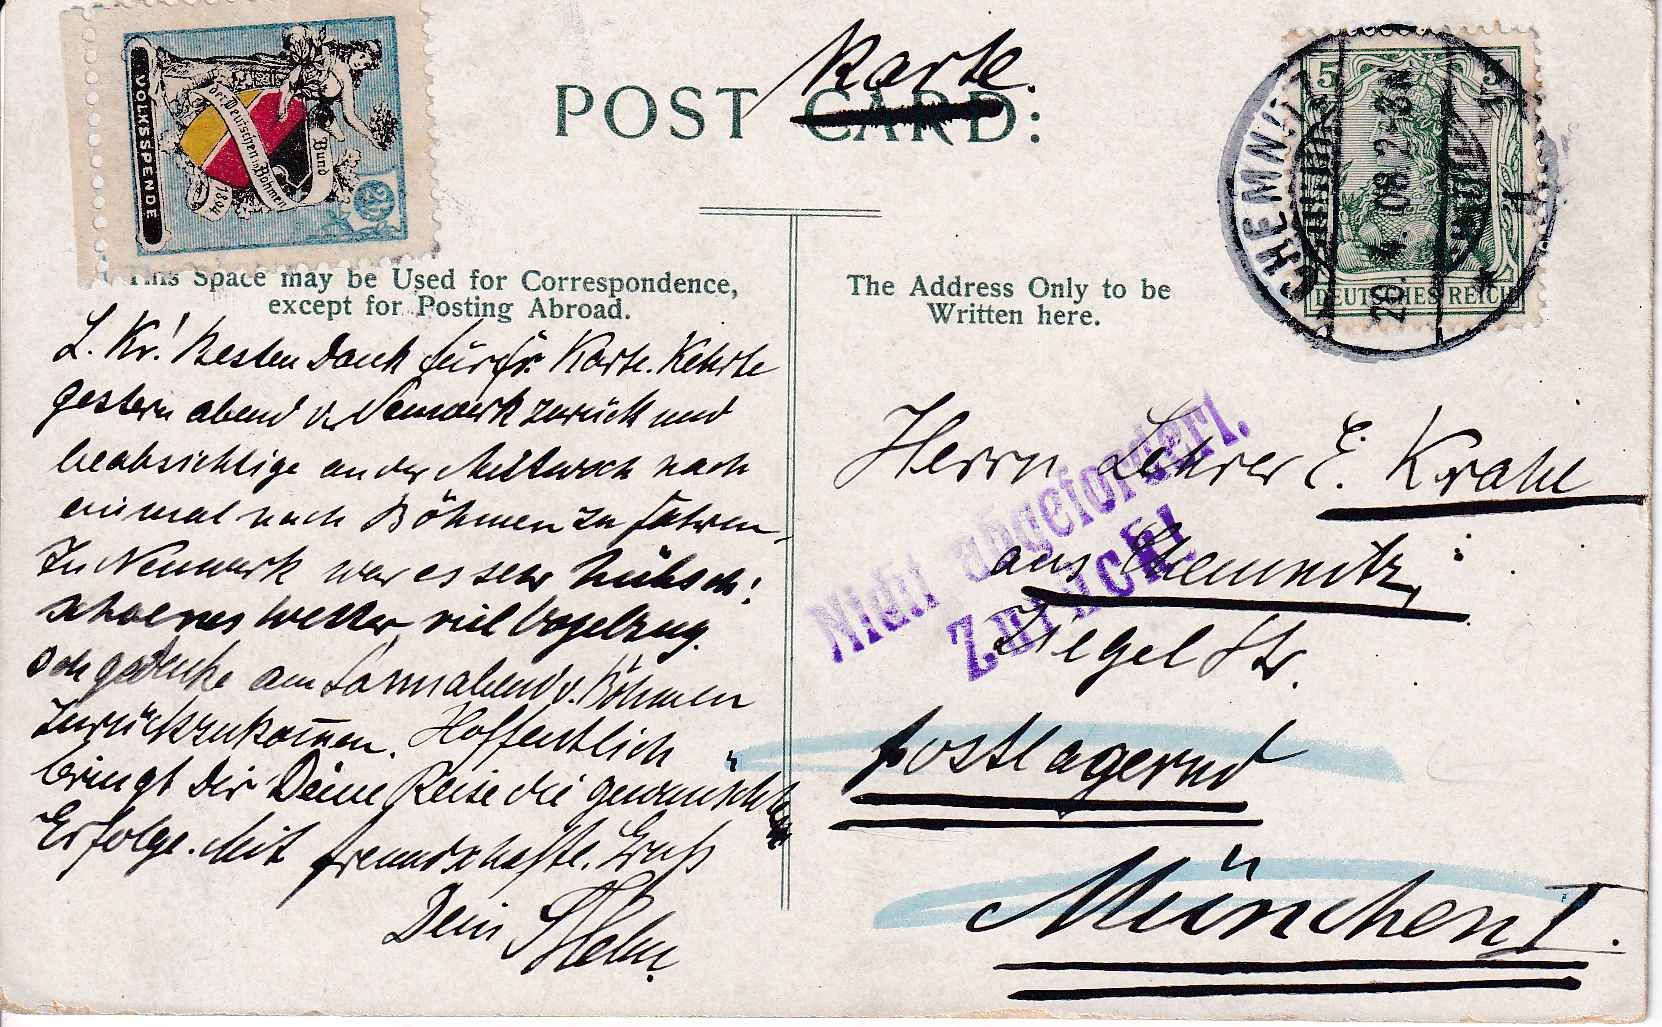 VOLKSSPENDE
Bund
der Deutschen in Böhmen
1894
POST CARD:
Karte.
5 5
DEUTSCHES REICH
CHEMNITZ
29. 4. 08. 2-3N
1
This Space may be Used for Correspondence,
except for Posting Abroad.
The Address Only to be
Written here.
L. Kr! Besten Dank für fr. Karte. Kehrte
gestern abend v. Neuwerk zurück und
beabsichtige an der Mittwoch nach
einmal nach Böhmen zu fahren.
In Neuwerk war es sehr hübsch!
schoenes Wetter, viel Vogelzug.
Ich gedenke am Sonnabend v. Böhmen
zurückzukommen. Hoffentlich
bringt Dir Deine Reise die gewünschten
Erfolge. Mit freundschaftl. Gruß
Dein
Herrn Lehrer E. Krahe
aus Chemnitz,
Ziegel Str.
postlagernd
München I.
Nicht abgefordert.
Zurück!